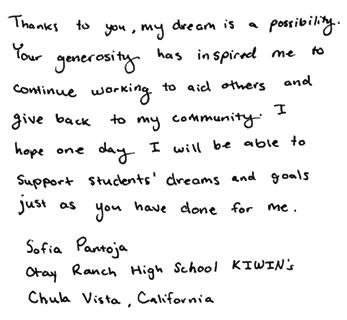 Thanks to you, my dream is a possibility.
Your generosity has inspired me to
continue working to aid others and
give back to my community. I
hope one day I will be able to
support students' dreams and goals
just as you have done for me.
Sofia Pantoja
Otay Ranch High School KIWIN's
Chula Vista, California